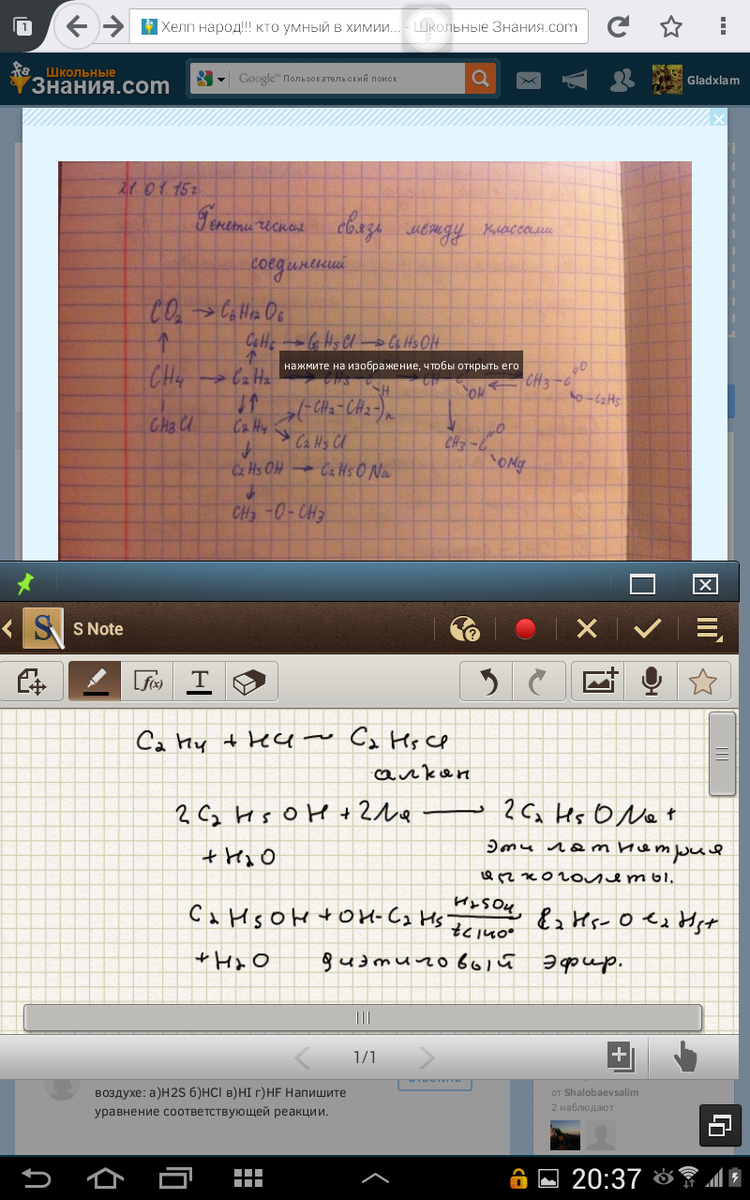 1
Хелп народ!!! кто умный в химии... - Школьные Знания.com
Школьные
Знания.com
Google™ Пользовательский поиск
Gladxlam
21.01.15г
Генетическая связь между классами
соединений
CO2 → C6H12O6
C6H6 → C6H5Cl → C6H5OH
нажмите на изображение, чтобы открыть его
CH4 → C2H2 → CH3-C H → CH C OH CH3-C O O-C2H5
(-CH2-CH2-)n
CH3Cl C2H4 CH3-C O
C2H5Cl OMg
C2H5OH → C2H5ONa
CH3-O-CH3
S Note
f(x)
T
C2H4 + HCl — C2H5Cl
алкан
2C2H5OH + 2Na —— 2C2H5ONa +
+ H2O этилат натрия
алкоголяты.
C2H5OH + OH-C2H5 H2SO4 t<140° C2H5-O C2H5+
+ H2O диэтиловый эфир.
1/1
Ответить
воздухе: а)H2S б)HCl в)HI г)HF Напишите
уравнение соответствующей реакции.
от Shalobaevsalim
2 наблюдают
20:37